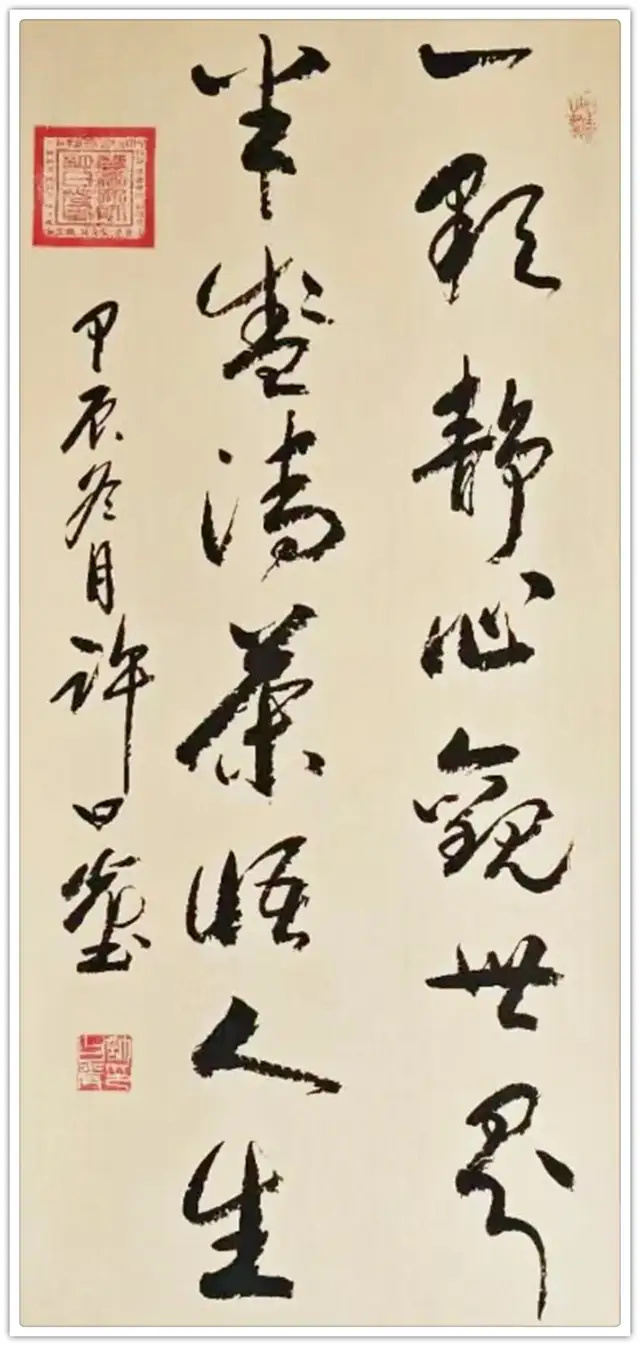 一颗静心观世界
半盏清茶悟人生
甲辰冬月许日